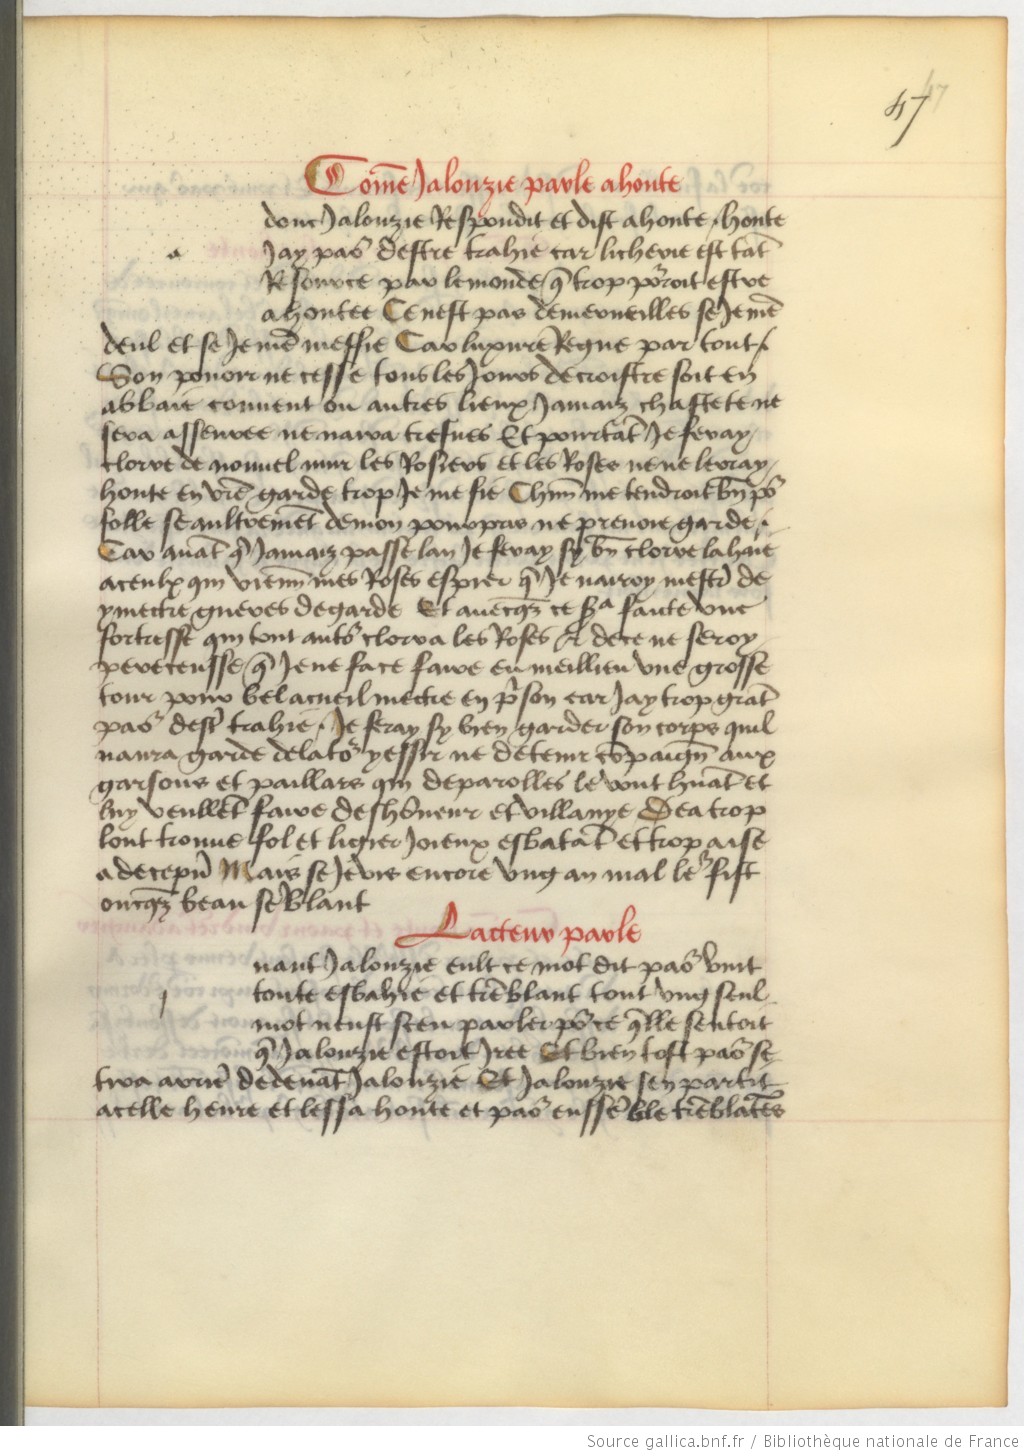 47
Com̃e Jalouzie parle a honte
donc Jalouzie Respondit et dist a honte / honte
a
Jay pao᷒ destre trahie car licherie est tãt
Resource par le monde / q̃ trop p᷒roit estre
ahontee Ce nest pas de merueilles se Je mẽ
deul et se Je mẽ meffie Car luxure Regne par tout /
Son pouoir ne cesse tous les Jours de croistre soit en
abbaie conuent ou autres lieux Jamaiz chastete ne
sera asseuree ne naura tresues Et pourtãt Je feray /
clorre de nouuel mur les Rosiers et les Roses ne ne leray /
honte en vr̃e garde trop Je me fie Chũn me tendroit bñ po᷒
folle se aultremẽt de mon pourpris ne prenoie garde /
Car auãt q̃ Jamaiz passe lan Je feray sy bñ clorre la haie
a ceulx qui vienñ mes Roses espier q̃ Je nairoy mestr̃ de
y mectre gueres de garde Et auecqz ce sa faite vne
fortresse qui tout auto᷒ clorra les Roses Et de ce ne seroy
perecensse / q̃ Je ne face faire en meillieu vne grosse
tour pour bel acueil mectre en p̃son car Jay trop grãt
pao᷒ dest̃ trahie / Je feray sy bien garder son corps quil
naura garde de la to᷒ yessir ne de tenir cõpaigñ aux
garsons et paillars qui de parolles le vont huãt et
luy veullẽt faire deshõneur et villanye Dea trop
lont trouue fol et ligier Joieux esbatãt et trop aise
a decepũ Mais se Je vis encore vng an mal le᷒ fist
oncqz beau sẽblant
Lacteur parle
nant Jalouzie eult ce mot dit pao᷒ vint
toute esbahie et trẽblant tout vng seul
mot neust sceu parler po᷒ ce q̃lle sentoit
q̃ Jalouzie estoit Iree Et bien tost pao᷒ se
tira arriẽ de deuãt Jalouzie Et Jalouzie sen partit
a celle heure et lessa honte et pao᷒ enssẽble trẽblãtes
Source gallica.bnf.fr / Bibliothèque nationale de France